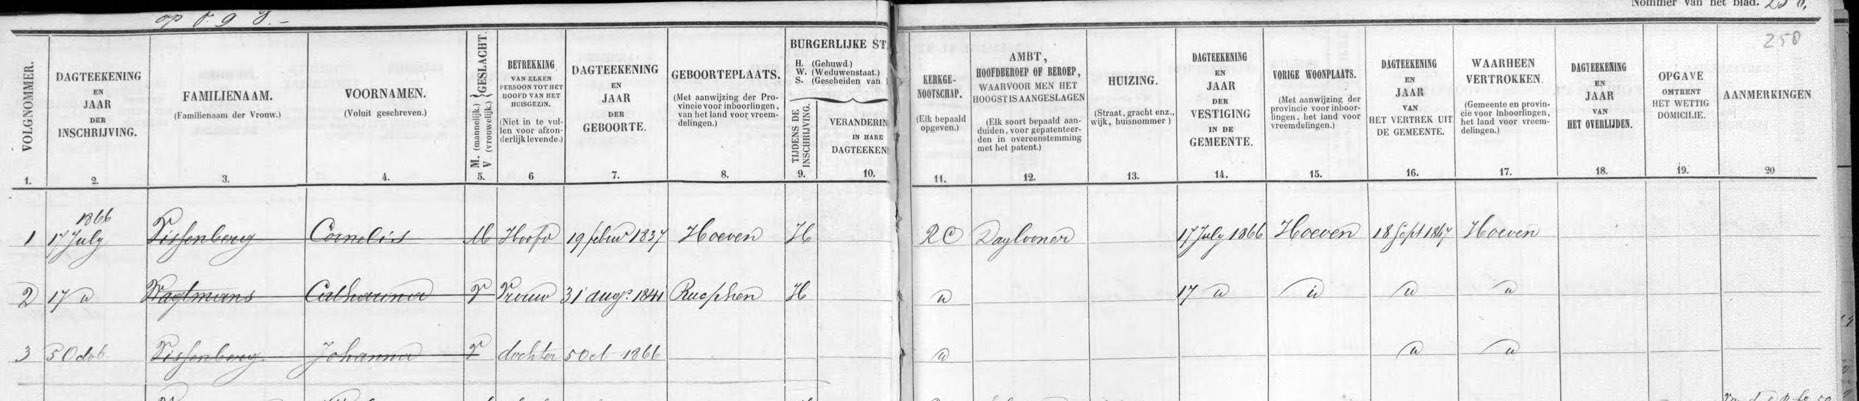 op 898.-
Nommer van het blad. 258.
258
VOLGNOMMER.
DAGTEEKENING
EN
JAAR
DER
INSCHRIJVING.
FAMILIENAAM.
(Familienaam der Vrouw.)
VOORNAMEN.
(Voluit geschreven.)
M. (mannelijk.) V. (vrouwelijk.) GESLACHT.
BETREKKING
VAN ELKEN
PERSOON TOT HET
HOOFD VAN HET
HUISGEZIN.
(Niet in te vul-
len voor afzon-
derlijk levende.)
DAGTEEKENING
EN
JAAR
DER
GEBOORTE.
GEBOORTEPLAATS.
(Met aanwijzing der Pro-
vincie voor inboorlingen,
van het land voor vreem-
delingen.)
BURGERLIJKE ST
H. (Gehuwd.)
W. (Weduwenstaat.)
S. (Gescheiden van
TIJDENS DE
INSCHRIJVING.
VERANDERIN
IN HARE
DAGTEEKEN
KERKGE-
NOOTSCHAP.
(Elk bepaald
opgeven.)
AMBT,
HOOFDBEROEP OF BEROEP,
WAARVOOR MEN HET
HOOGST IS AANGESLAGEN
(Elk soort bepaald aan-
duiden, voor gepatenteer-
den in overeenstemming
met het patent.)
HUIZING.
(Straat, gracht enz.,
wijk, huisnommer)
DAGTEEKENING
EN
JAAR
DER
VESTIGING
IN DE
GEMEENTE.
VORIGE WOONPLAATS.
(Met aanwijzing der
provincie voor inboor-
lingen, het land voor
vreemdelingen.)
DAGTEEKENING
EN
JAAR
VAN
HET VERTREK UIT
DE GEMEENTE.
WAARHEEN
VERTROKKEN.
(Gemeente en provin-
cie voor inboorlingen,
het land voor vreem-
delingen.)
DAGTEEKENING
EN
JAAR
VAN
HET OVERLIJDEN.
OPGAVE
OMTRENT
HET WETTIG
DOMICILIE.
AANMERKINGEN
1. 2. 3. 4. 5. 6 7. 8. 9. 10. 11. 12. 13. 14. 15. 16. 17. 18. 19. 20
1866
1 17 July Tissenberg Cornelis M Hoofd 19 febur 1837 Hoeven H RC Daglooner 17 July 1866 Hoeven 18 Sept 1867 Hoeven
2 17 " Wagtmans Catharina V Vrouw 31 augs 1841 Rucphen H " 17 " " " "
3 5 Octob Tissenberg Johanna V dochter 5 Oct 1866 " " "